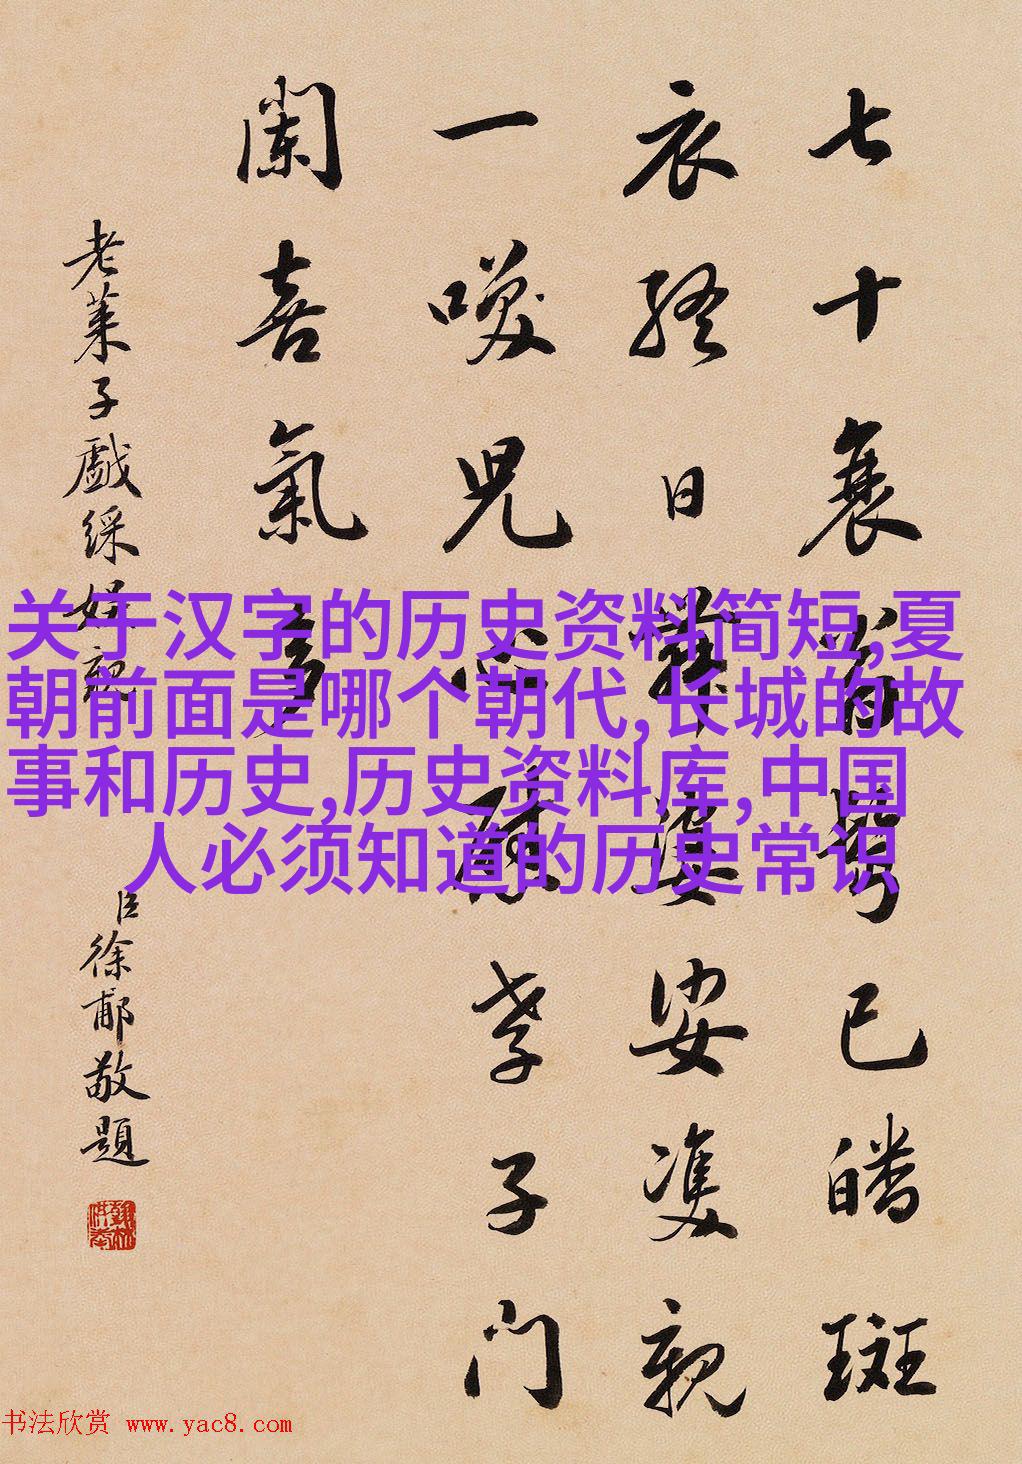 七十衰已皤斑
衣終日舞婆娑雙親
一咲兒心孝子門
闌喜氣多
老萊子戲綵娛親
臣徐郙敬題
关于汉字的历史资料简短,夏
朝前面是哪个朝代,长城的故
事和历史,历史资料库,中国
人必须知道的历史常识
书法欣赏 www.yac8.com